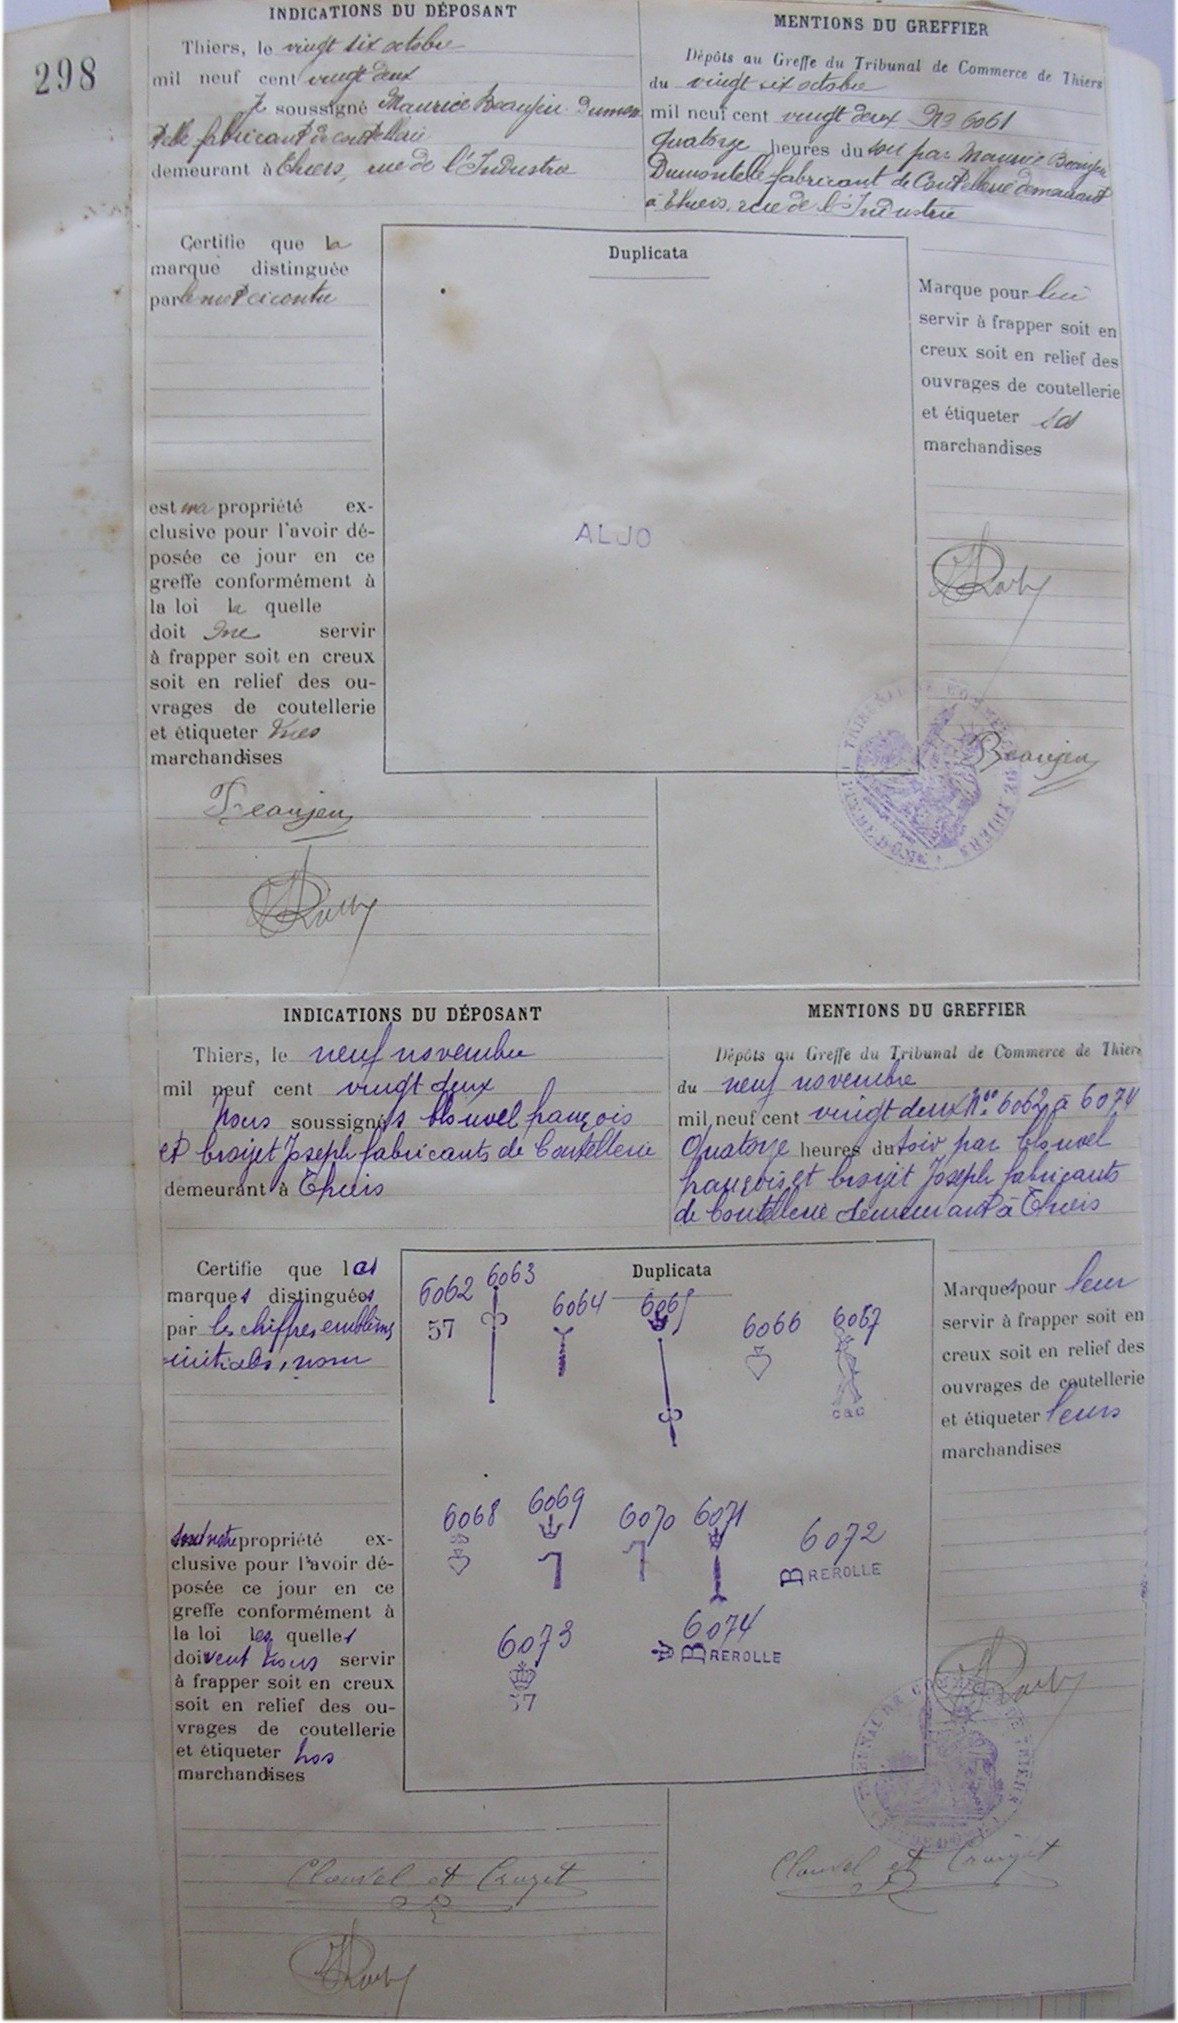 298
INDICATIONS DU DÉPOSANT
Thiers, le vingt six octobre
mil neuf cent vingt deux
Je soussigné Maurice Beaujeu Dumon
telle fabricant de coutellerie
demeurant à Thiers, rue de l'Industrie
MENTIONS DU GREFFIER
Dépôts au Greffe du Tribunal de Commerce de Thiers
du vingt six octobre
mil neuf cent vingt deux No 6061
Quatorze heures du soir par Maurice Beaujeu
Dumontelle fabricant de Coutellerie demeurant
à Thiers, rue de l'Industrie
Certifie que la
marque distinguée
par le mot ci contre
est ma propriété ex-
clusive pour l'avoir dé-
posée ce jour en ce
greffe conformément à
la loi la quelle
doit me servir
à frapper soit en creux
soit en relief des ou-
vrages de coutellerie
et étiqueter mes
marchandises
Beaujeu
Duplicata
ALJO
Marque pour lui
servir à frapper soit en
creux soit en relief des
ouvrages de coutellerie
et étiqueter ses
marchandises
TRIBUNAL DE COMMERCE DE THIERS
Beaujeu
INDICATIONS DU DÉPOSANT
Thiers, le neuf novembre
mil neuf cent vingt deux
Nous soussignés Clouvel françois
et Croizet Joseph fabricants de Coutellerie
demeurant à Thiers
MENTIONS DU GREFFIER
Dépôts au Greffe du Tribunal de Commerce de Thiers
du neuf novembre
mil neuf cent vingt deux Nos 6062 à 6074
Quatorze heures du soir par Clouvel
françois et Croizet Joseph fabricants
de Coutellerie demeurant à Thiers
Certifie que les
marques distinguées
par les chiffres emblèmes
initiales, nom
sont notre propriété ex-
clusive pour l'avoir dé-
posée ce jour en ce
greffe conformément à
la loi les quelles
doivent nous servir
à frapper soit en creux
soit en relief des ou-
vrages de coutellerie
et étiqueter nos
marchandises
Clouvel et Croizet
Duplicata
6062 6063 6064 6065 6066 6067
57
c&c
6068 6069 6070 6071 6072
BREROLLE
6073 6074
57
BREROLLE
Marques pour leur
servir à frapper soit en
creux soit en relief des
ouvrages de coutellerie
et étiqueter leurs
marchandises
TRIBUNAL DE COMMERCE DE THIERS
Clouvel et Croizet